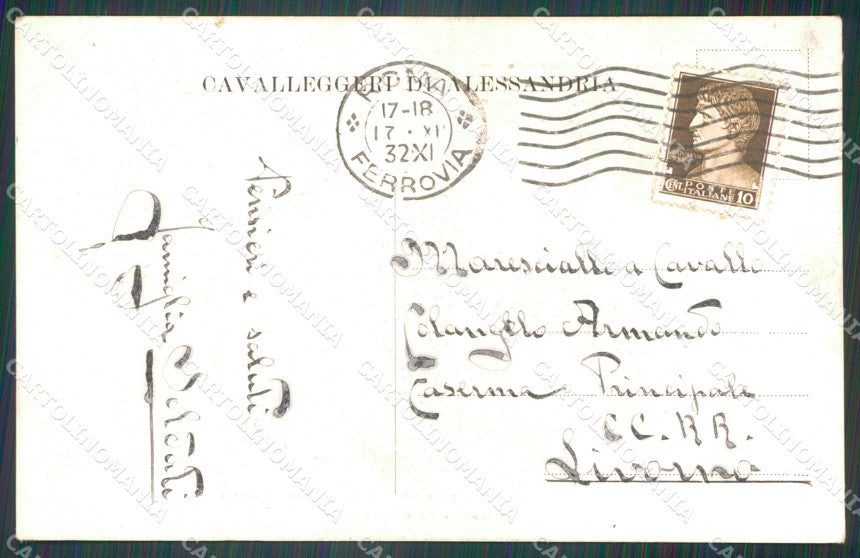 CAVALLEGGERI DI ALESSANDRIA
ROMA
17-18
17 · XI
32 XI
FERROVIA
POSTE
ITALIANE
CENT. 10
Pensieri e saluti
Famiglia
Maresciallo a Cavallo
Colangelo Armando
Caserma Principale
CC. RR.
Livorno
CARTOLINOMANIA